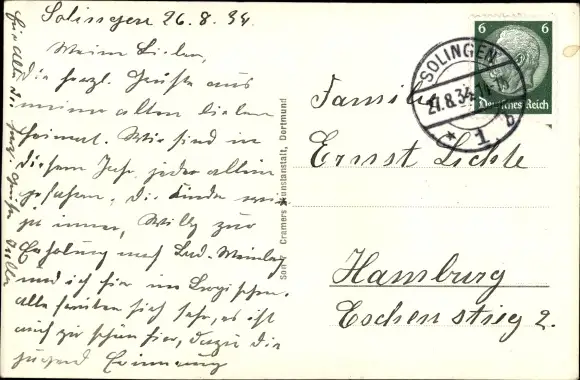 Solingen 26.8.34.
Meine Lieben,
die herzl. Grüße aus
meiner alten lieben
Heimat. Wir sind in
diesem Jahr jeder allein
gefahren, die Kinder wie
je immer, Willy zur
Erholung nach Bad.
und ich hier im Bergischen.
Alle freuen sich sehr, es ist
auch zu schön hier, dazu die
Jugend Erinnerung
Cramers Kunstanstalt, Dortmund
6 6
Deutsches Reich
SOLINGEN
27.8.34
* 1 b
Familie
Ernst Lichte
Hamburg
Eschenstieg 2.